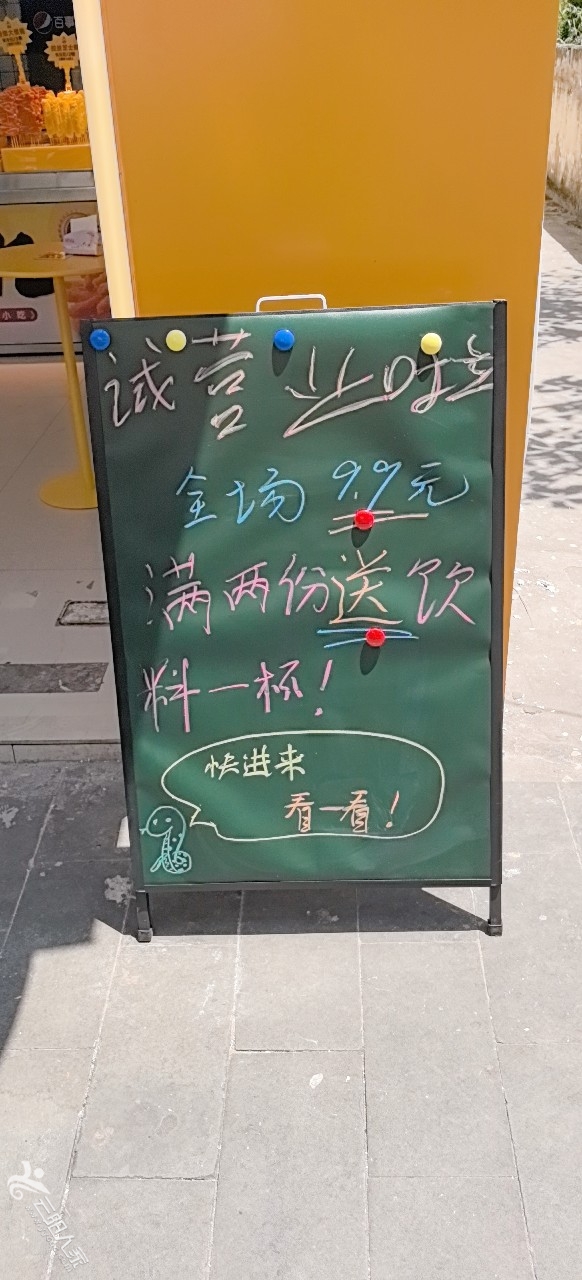 百事
小吃
诚营业啦
全场9.9元
满两份送饮
料一杯！
快进来
看一看！